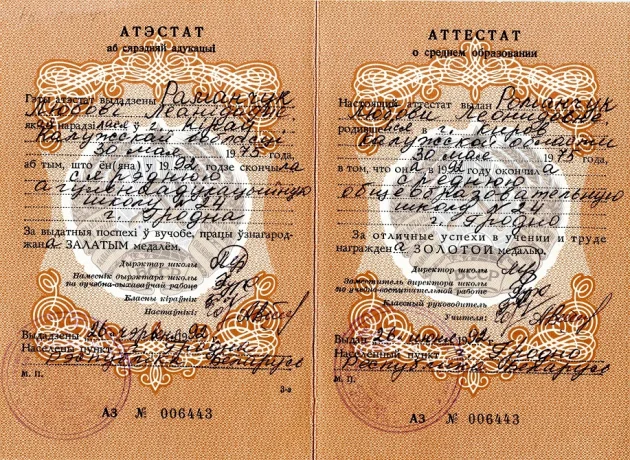 АТЭСТАТ
аб сярэдняй адукацыі
Гэты атэстат выдадзены Раманчук
Любові Леанідаўне
які нарадзіўся ў г. Кіраў
Калужской вобласці
30 мая 1975 года,
аб тым, што ён(на) ў 1992 годзе скончыла
сярэднюю
агульнаадукацыйную
школу № 34
г. Гродна
За выдатныя поспехі ў вучобе, працы ўзнагарод-
жана ЗАЛАТЫМ медалём,
Дырэктар школы
Намеснік дырэктара школы
па вучэбна-выхаваўчай рабоце
Класны кіраўнік
Настаўнікі:
Выдадзены 26 чэрвеня 1992
Населены пункт г. Гродна
Рэспубліка Беларусь
М. П.
3-а
АЗ № 006443
АТТЕСТАТ
о среднем образовании
Настоящий аттестат выдан Романчук
Любови Леонидовне
родившейся в г. Киров
Калужской области
30 мая 1975 года,
в том, что она в 1992 году окончила
среднюю
общеобразовательную
школу № 34
г. Гродно
За отличные успехи в учении и труде
награждена ЗОЛОТОЙ медалью.
Директор школы
Заместитель директора школы
по учебно-воспитательной работе
Классный руководитель
Учителя:
Выдан 26 июня 1992
Населённый пункт г. Гродно
Республика Беларусь
М. П.
АЗ № 006443